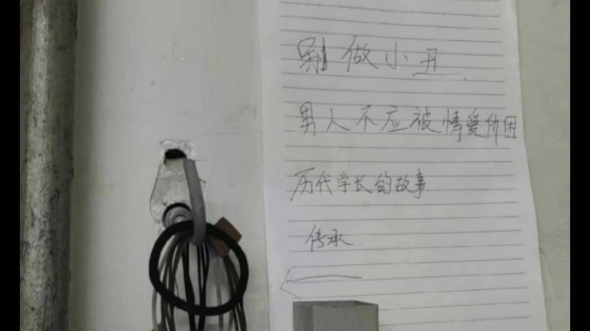 别做小丑
男人不应被情爱所困
历代学长的故事
传承